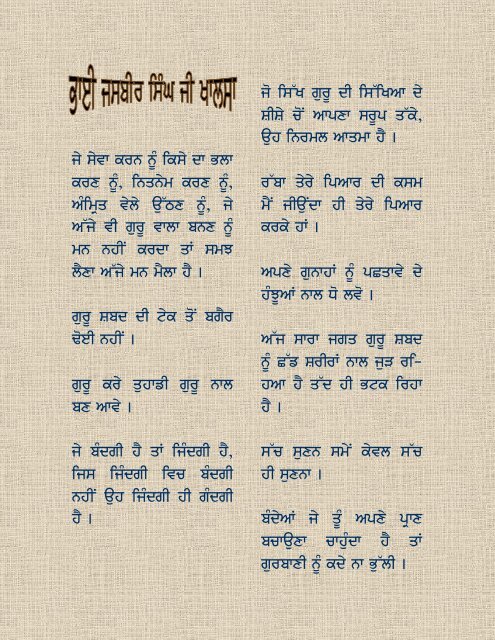 ਭਾਈ ਜਸਬੀਰ ਸਿੰਘ ਜੀ ਖਾਲਸਾ
ਜੇ ਸੇਵਾ ਕਰਨ ਨੂੰ ਕਿਸੇ ਦਾ ਭਲਾ
ਕਰਣ ਨੂੰ, ਨਿਤਨੇਮ ਕਰਣ ਨੂੰ,
ਅੰਮ੍ਰਿਤ ਵੇਲੇ ਉੱਠਣ ਨੂੰ, ਜੇ
ਅੱਜੇ ਵੀ ਗੁਰੂ ਵਾਲਾ ਬਨਣ ਨੂੰ
ਮਨ ਨਹੀਂ ਕਰਦਾ ਤਾਂ ਸਮਝ
ਲੈਣਾ ਅੱਜੇ ਮਨ ਮੈਲਾ ਹੈ ।
ਗੁਰੂ ਸ਼ਬਦ ਦੀ ਟੇਕ ਤੋਂ ਬਗੈਰ
ਢੋਈ ਨਹੀਂ ।
ਗੁਰੂ ਕਰੇ ਤੁਹਾਡੀ ਗੁਰੂ ਨਾਲ
ਬਣ ਆਵੇ ।
ਜੇ ਬੰਦਗੀ ਹੈ ਤਾਂ ਜਿੰਦਗੀ ਹੈ,
ਜਿਸ ਜਿੰਦਗੀ ਵਿਚ ਬੰਦਗੀ
ਨਹੀਂ ਉਹ ਜਿੰਦਗੀ ਹੀ ਗੰਦਗੀ
ਹੈ ।
ਜੋ ਸਿੱਖ ਗੁਰੂ ਦੀ ਸਿੱਖਿਆ ਦੇ
ਸ਼ੀਸ਼ੇ ਚੋਂ ਆਪਣਾ ਸਰੂਪ ਤੱਕੇ,
ਉਹ ਨਿਰਮਲ ਆਤਮਾ ਹੈ ।
ਰੱਬਾ ਤੇਰੇ ਪਿਆਰ ਦੀ ਕਸਮ
ਮੈਂ ਜੀਉਂਦਾ ਹੀ ਤੇਰੇ ਪਿਆਰ
ਕਰਕੇ ਹਾਂ ।
ਅਪਣੇ ਗੁਨਾਹਾਂ ਨੂੰ ਪਛਤਾਵੇ ਦੇ
ਹੰਝੂਆਂ ਨਾਲ ਧੋ ਲਵੋ ।
ਅੱਜ ਸਾਰਾ ਜਗਤ ਗੁਰੂ ਸ਼ਬਦ
ਨੂੰ ਛੱਡ ਸ਼ਰੀਰਾਂ ਨਾਲ ਜੁੜ ਰਿ-
ਹਆ ਹੈ ਤੱਦ ਹੀ ਭਟਕ ਰਿਹਾ
ਹੈ ।
ਸੱਚ ਸੁਣਨ ਸਮੇਂ ਕੇਵਲ ਸੱਚ
ਹੀ ਸੁਣਨਾ ।
ਬੰਦੇਆਂ ਜੇ ਤੂੰ ਅਪਣੇ ਪ੍ਰਾਣ
ਬਚਾਉਣਾ ਚਾਹੁੰਦਾ ਹੈ ਤਾਂ
ਗੁਰਬਾਣੀ ਨੂੰ ਕਦੇ ਨਾ ਭੁੱਲੀ ।